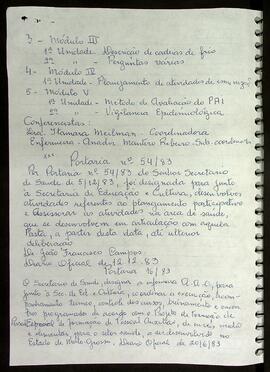 3 - Módulo III
1ª Unidade - Descrição de cadeias de frio
2ª " - Perguntas várias
4 - Módulo IV
1ª Unidade - Planejamento de atividades de imunização
5 - Módulo V
1ª Unidade - Método de Avaliação do PAI
2ª " - Vigilância Epidemiológica
Conferencistas:
Dra. Itamara Meilman - Coordenadora
Enfermeira - Anadir Monteiro Ribeiro - Sub-coordenadora
Portaria nº 54/83
Por Portaria nº 54/83 do Senhor Secretário
de Saúde de 5/12/83, foi designada para junto
a Secretaria de Educação e Cultura, desenvolver
atividades referentes ao planejamento participativo
e assessorar as atividades na área de saúde,
que se desenvolvem em articulação com aquela
Pasta, a partir desta data, até ulterior
deliberação
Dr. João Francisco Campos
Diário Oficial de 12.12.83
Portaria 16/83
O Secretário de Saúde, designa a enfermeira A. A. O, para
junto à Sec. de Ed. e Cultura, coordenar a execução, acom-
panhamento técnico, controle dos cursos, treinamento e exames
por programados de acordo com o Projeto de Formação de
de formação de Pessoal Auxiliar, de nível médio
e elementar para o setor saúde, a ser desenvolvido no
Estado de Mato Grosso. Diário Oficial de 20/6/83